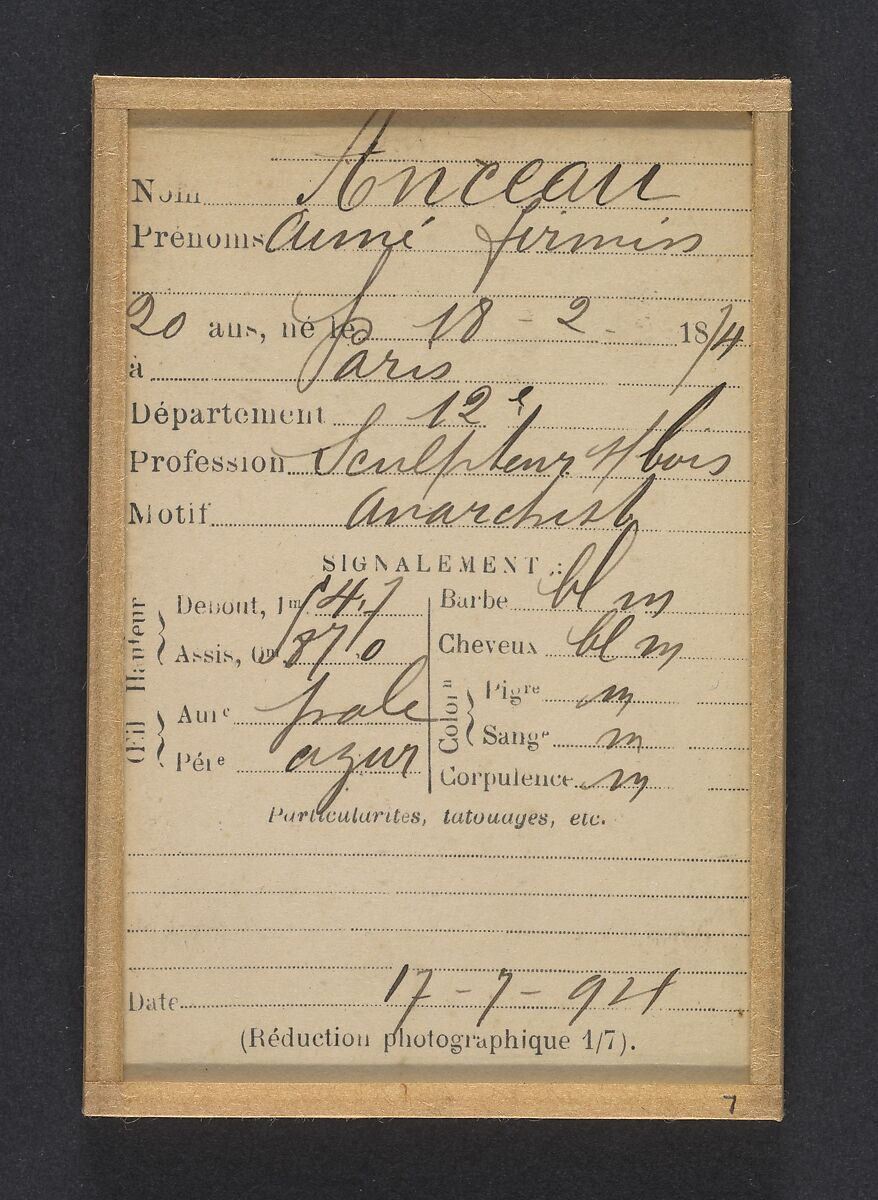 Nom Anceau
Prénoms Aimé firmin
20 ans, né le 18 - 2 - 1874
à Paris
Département 12e
Profession Sculpteur s/bois
Motif anarchiste
SIGNALEMENT :
Hauteur
Debout, 1m 54,7
Assis, 0m 87,0
Œil
Aure pale
Pére azur
Barbe bl m
Cheveux bl m
Colorn
Pigre m
Sange m
Corpulence m
Particularités, tatouages, etc.
Date 17 - 7 - 94
(Réduction photographique 1/7).
7